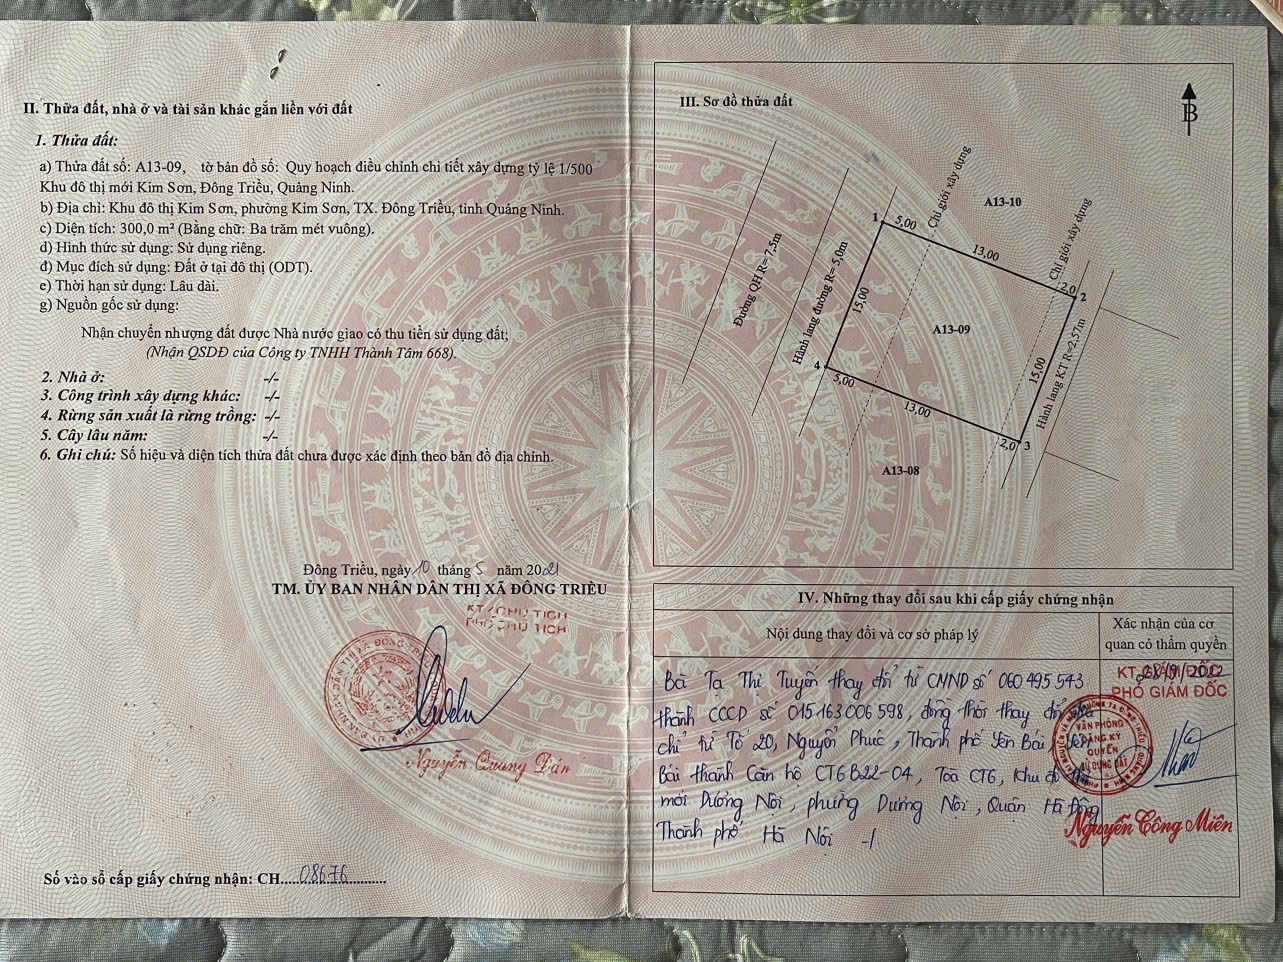 II. Thửa đất, nhà ở và tài sản khác gắn liền với đất
1. Thửa đất:
a) Thửa đất số: A13-09, tờ bản đồ số: Quy hoạch điều chỉnh chi tiết xây dựng tỷ lệ 1/500
Khu đô thị mới Kim Sơn, Đông Triều, Quảng Ninh.
b) Địa chỉ: Khu đô thị Kim Sơn, phường Kim Sơn, TX. Đông Triều, tỉnh Quảng Ninh.
c) Diện tích: 300,0 m² (Bằng chữ: Ba trăm mét vuông).
d) Hình thức sử dụng: Sử dụng riêng.
đ) Mục đích sử dụng: Đất ở tại đô thị (ODT).
e) Thời hạn sử dụng: Lâu dài.
g) Nguồn gốc sử dụng:
Nhận chuyển nhượng đất được Nhà nước giao có thu tiền sử dụng đất;
(Nhận QSDĐ của Công ty TNHH Thành Tâm 668).
2. Nhà ở: -/-
3. Công trình xây dựng khác: -/-
4. Rừng sản xuất là rừng trồng: -/-
5. Cây lâu năm: -/-
6. Ghi chú: Số hiệu và diện tích thửa đất chưa được xác định theo bản đồ địa chính.
Đông Triều, ngày 10 tháng 5 năm 2021
TM. ỦY BAN NHÂN DÂN THỊ XÃ ĐÔNG TRIỀU
KT/CHỦ TỊCH
PHÓ CHỦ TỊCH
Nguyễn Quang Dân
Số vào sổ cấp giấy chứng nhận: CH....08676
III. Sơ đồ thửa đất
B
A13-10
Chỉ giới xây dựng
Chỉ giới xây dựng
1
5,00
13,00
2,0
2
Đường QH R= 7,5m
Hành lang đường R= 5,0m
15,00
A13-09
15,00
Hành lang KT R=2,57m
4
5,00
13,00
2,0
3
A13-08
IV. Những thay đổi sau khi cấp giấy chứng nhận
Nội dung thay đổi và cơ sở pháp lý
Xác nhận của cơ
quan có thẩm quyền
Bà Tạ Thị Tuyến thay đổi từ CMND số 060495543
thành CCCD số 015163006598, đồng thời thay đổi địa
chỉ từ Tổ 20, Nguyễn Phúc, Thành phố Yên Bái, Yên
Bái thành Căn hộ CT6B22-04, Toà CT6, Khu đô thị
mới Dương Nội, phường Dương Nội, Quận Hà Đông
Thành phố Hà Nội -/
28/9/2022
KT. GIÁM ĐỐC
PHÓ GIÁM ĐỐC
VĂN PHÒNG
ĐĂNG KÝ
QUYỀN
SỬ DỤNG ĐẤT
Nguyễn Công Miên